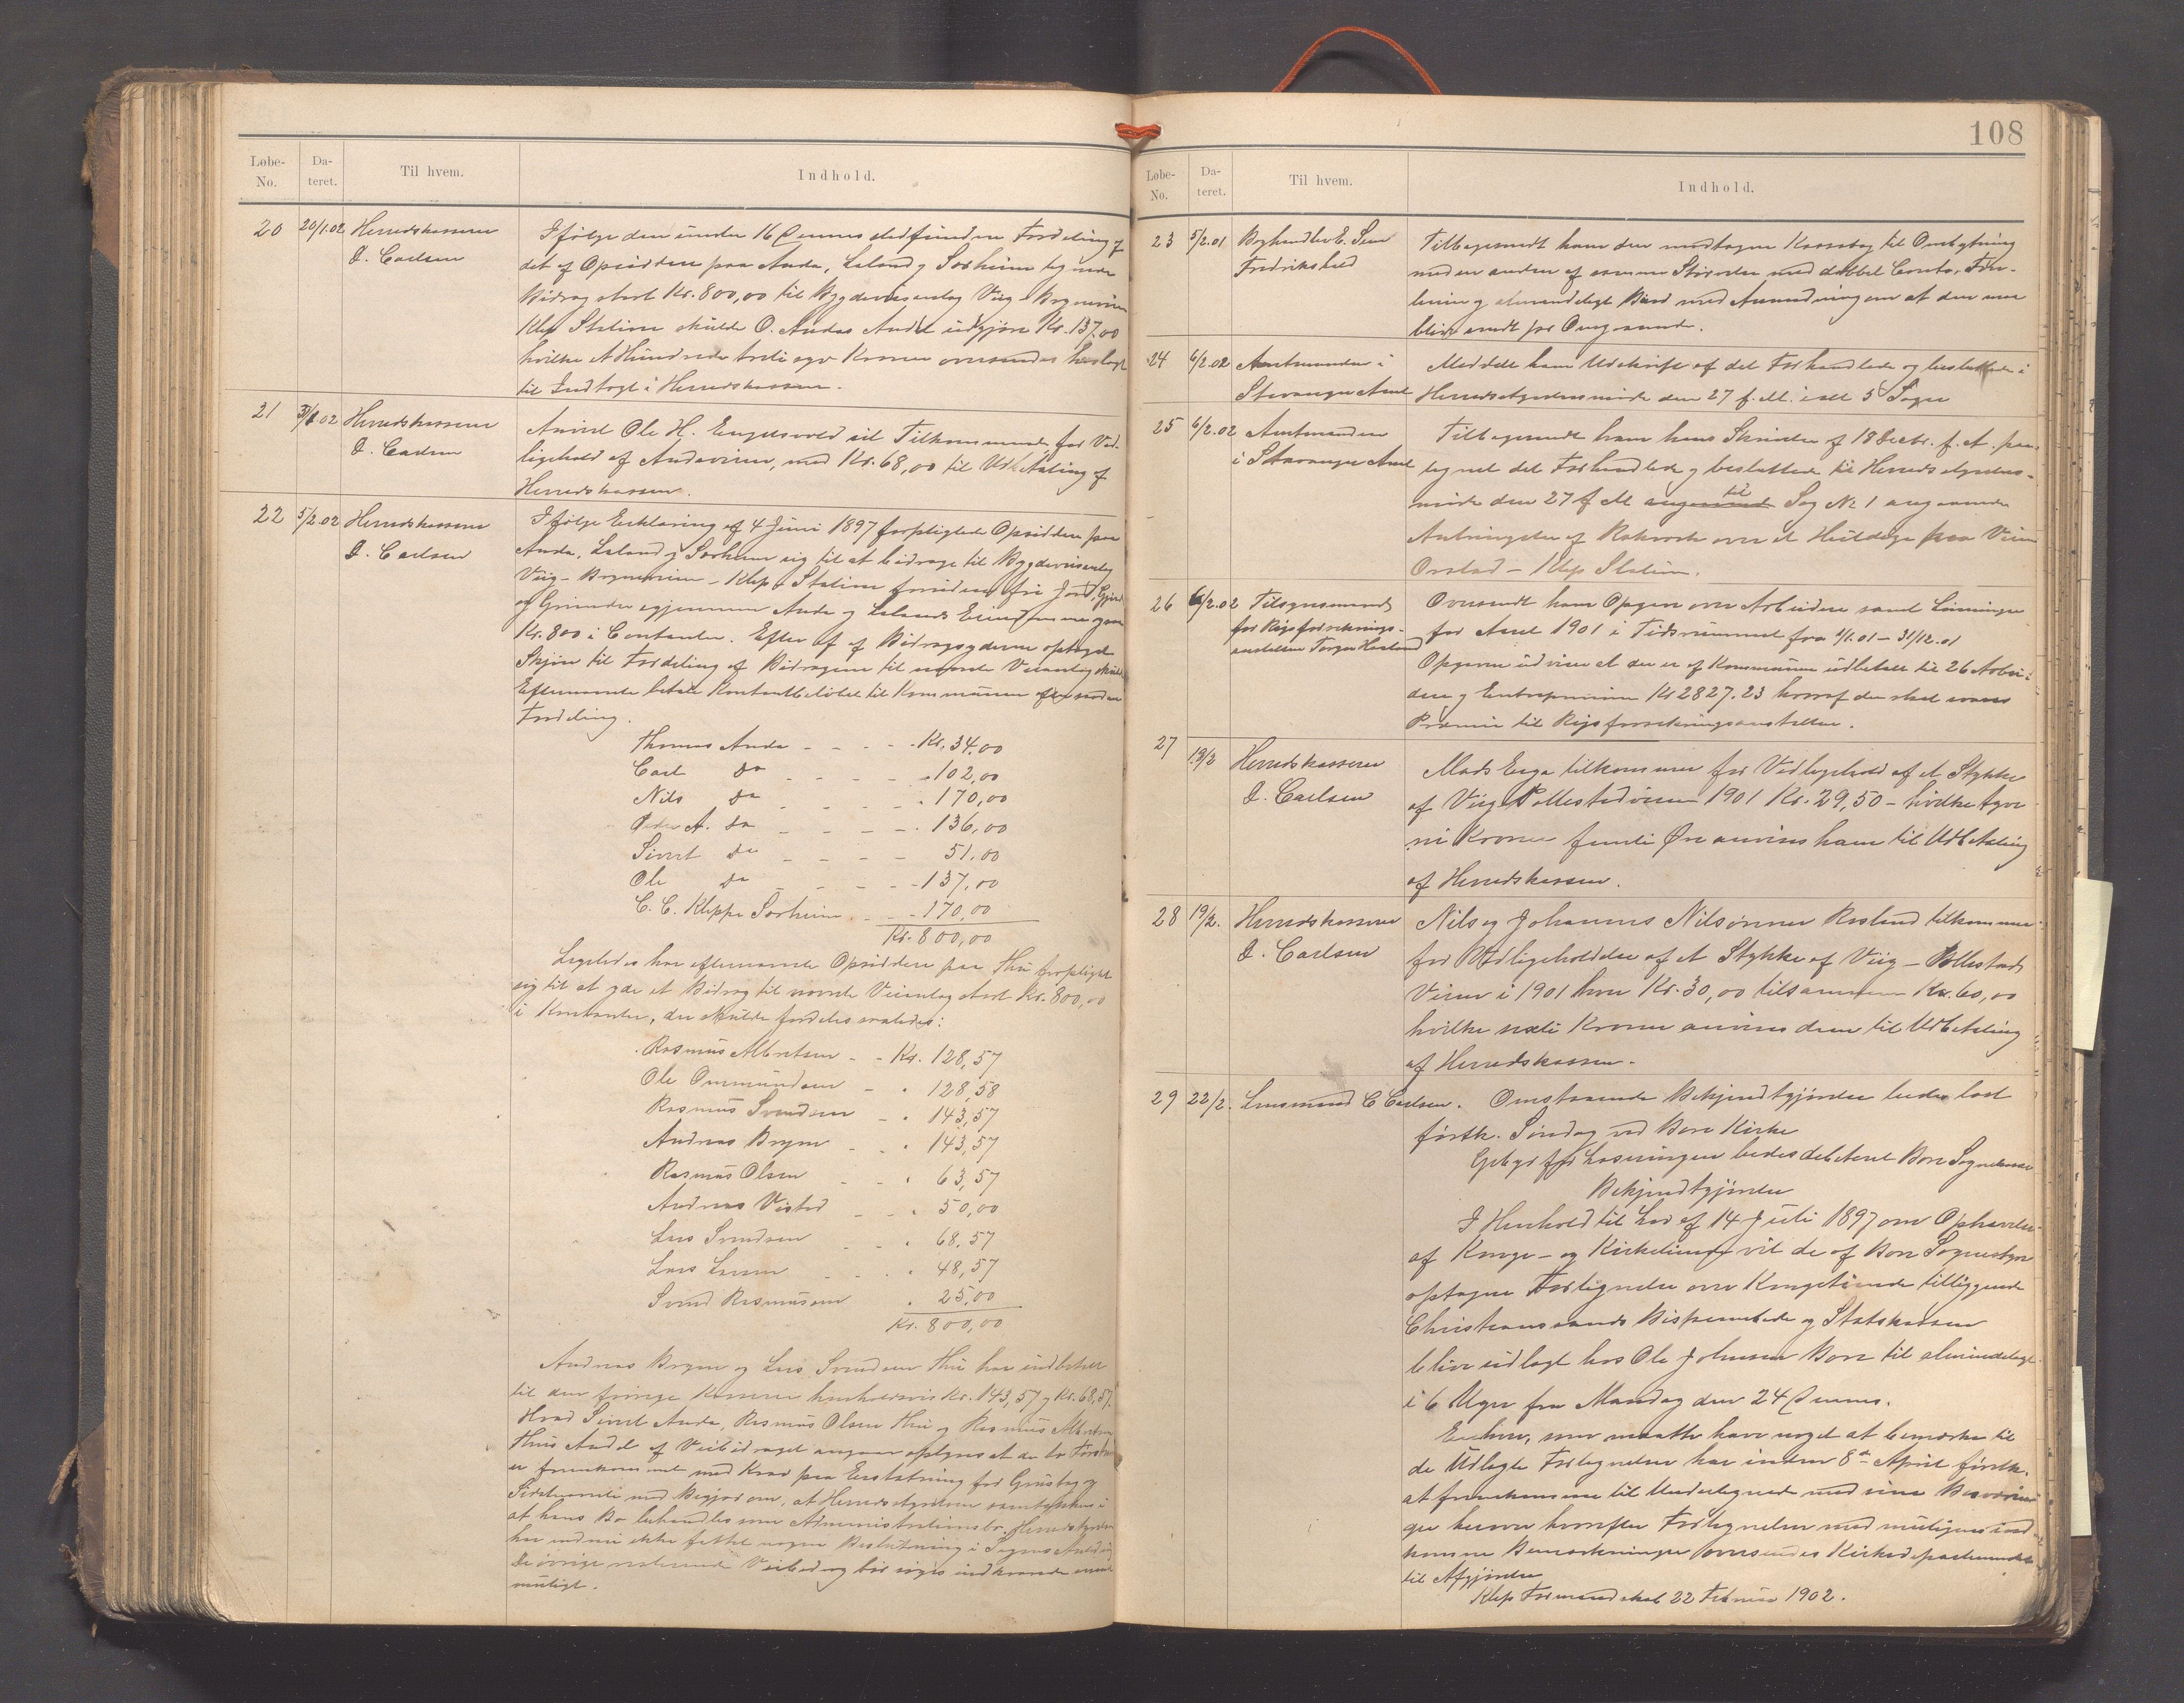 108
Løbe-No. Da-teret. Til hvem. Indhold.
20 20/1.02 Herredskasserer
D. Carlsen
Ifølge den under 16 Dennes stedfundne Fordeling af
det af Opsiddere paa Anda, Laland og Sørheim tegnede
Bidrag stort Kr. 800,00 til Bygdeveianlæg Viig - Bryneveien
Klep Station skulde O. Andas Andel udgjøre Kr. 137,00
hvilke Et Hundrede treti syv Kroner oversendes herlagt
til Indtægt i Herredskassen.
21 31/1.02 Herredskasserer
D. Carlsen
Anvist Ole H. Engelsvold sit Tilkommende for Ved-
ligehold af Andaveien, med Kr. 68,00 til Udbetaling af
Herredskassen.
22 5/2.02 Herredskasserer
D. Carlsen
Ifølge Erklæring af 4 Juni 1897 forpligtede Opsiddere paa
Anda, Laland og Sørheim sig til at bidrage til Bygdeveianlæg
Viig - Bryneveien - Klep Station foruden fri Jord, Gjerde
og Grinder igjennem Anda og Lalands Eiendomme
Kr. 800 i Contanter. Efter af af Bidragsyderne optaget
Skjøn til Fordeling af Bidragene til nævnte Veianlæg skulde
Efternævnte betale Kontantbeløbet til Kommunen efter saadan
Fordeling.
Thomas Anda - - - - Kr. 34,00
Carl do - - - - " 102,00
Nils do - - - - " 170,00
Peder A. do - - - - " 136,00
Sivert do - - - - 51,00
Ole do - - - - 137,00
C. C. Kleppe Sørheim - - - 170,00
Kr. 800,00
Ligeledes har efternævnte Opsiddere paa Thu forpligtet
sig til at yde et Bidrag til nævnte Veianlæg stort Kr. 800,00
i Kontanter, der skulde fordeles saaledes:
Rasmus Albretsen - - Kr. 128,57
Ole Ommundsen - " 128,58
Rasmus Svendsen - " 143,57
Andreas Bryne - " 143,57
Rasmus Olsen - - " 63,57
Andreas Vistad - - " 50,00
Lars Svendsen - - " 68,57
Lars Larsen - - " 48,57
Svend Rasmussen " 25,00
Kr. 800,00
Andreas Bryne og Lars Svendsen Thu har indbetalt
til den forrige Kasserer henholdsvis Kr. 143,57 og Kr. 68,57.
Hvad Sivert Anda, Rasmus Olsen Thu og Rasmus Albretsen
Thus Andel af Veibidraget angaar oplyses at de to Første
er fremkommet med Krav paa Erstatning for Grustag og
Sidstnævnte med Begjær om, at Herredsstyrelsen samtykker i
at hans Bo behandles som Administrationsbo. Herredsstyrelsen
har endnu ikke fattet nogen Beslutning i Sagens Anledning
De øvrige resterende Veibidrag bør søges indkrævede snarest
muligt.
Løbe-No. Da-teret. Til hvem. Indhold.
23 5/2.01 Boghandler E. Sem
Fredrikshald
Tilbagesendt ham den modtagne Kassabog til Ombytning
med en anden af samme Størrelse med dobbel Conto, For-
linier og almindeligt Bind med Anmodning om at den maa
blive sendt pr Omgaaende.
24 6/2.02 Amtmanden i
Stavanger Amt
Meddelt ham Udskrift af det Forhandlede og besluttede i
Herredsstyrelsesmøde den 27 f. M. i alt 5 Sager
25 6/2.02 Amtmanden
i Stavanger Amt
Tilbagesendt ham hans Skrivelse af 18 Decbr. f. A. paa-
tegnet det Forhandlede og besluttede til Herredsstyrelses-
møde den 27 f M angaaende til Sag No 1 angaaende
Anbringelse af Rækværk over et Huldige paa Veien
Orstad - Klep Station.
26 6/2.02 Tilsynsmand
for Rigsforsikrings-
anstalten Torger Haaland
Oversendt ham Opgave over Arbeidere samt Lønninger
for Aaret 1901 i Tidsrummet fra 1/1.01 - 31/12.01
Opgaven udviser at der er af Kommunen udbetalt til 26 Arbei-
dere og Entreprenører Kr 2827.23 hvoraf der skal svares
Præmie til Rigsforsikringsanstalten.
27 19/2 Herredskasserer
D. Carlsen
Mads Erga tilkommer for Vedligehold af et Stykke
af Viig Pollestadveien 1901 Kr. 29,50 - hvilke tyve
ni Kroner femti Øre anvises ham til Udbetaling
af Herredskassen.
28 19/2. Herredskasserer
D. Carlsen
Nils og Johannes Nilsønner Rosland tilkommer
for Vedligeholdelse af et Stykke af Viig - Pollestad
Veien i 1901 hver Kr. 30,00 tilsammen Kr. 60,00
hvilke sexti Kroner anvises dem til Udbetaling
af Herredskassen.
29 22/2. Lensmand C Carlsen. Omstaaende Bekjendtgjørelse bedes læst
førstk. Søndag ved Bore Kirke
Gebyr for Læsningen bedes debiteret Bore Sognekasse
Bekjendtgjørelse
I Henhold til Lov af 14 Juli 1897 om Ophævelse
af Konge- og Kirketiende vil de af Bore Sognestyre
optagne Fortegnelse over Kongetiende tilliggende
Christianssands Bispeembede og Statskassen
blive udlagt hos Ole Johnsen Bore til almindeligt
i 6 Uger fra Mandag den 24 Dennes.
Enhver, som maatte have noget at bemærke til
de Udlagte Fortegnelser har inden 8de April førstk.
at fremkomme til Undertegnede med sine Besværin-
ger herover hvorefter Fortegnelsen med muligens ind-
komne Bemærkninger oversendes Kirkedepartementet
til Afgjørelse
Klep Formandskab 22 Februar 1902.